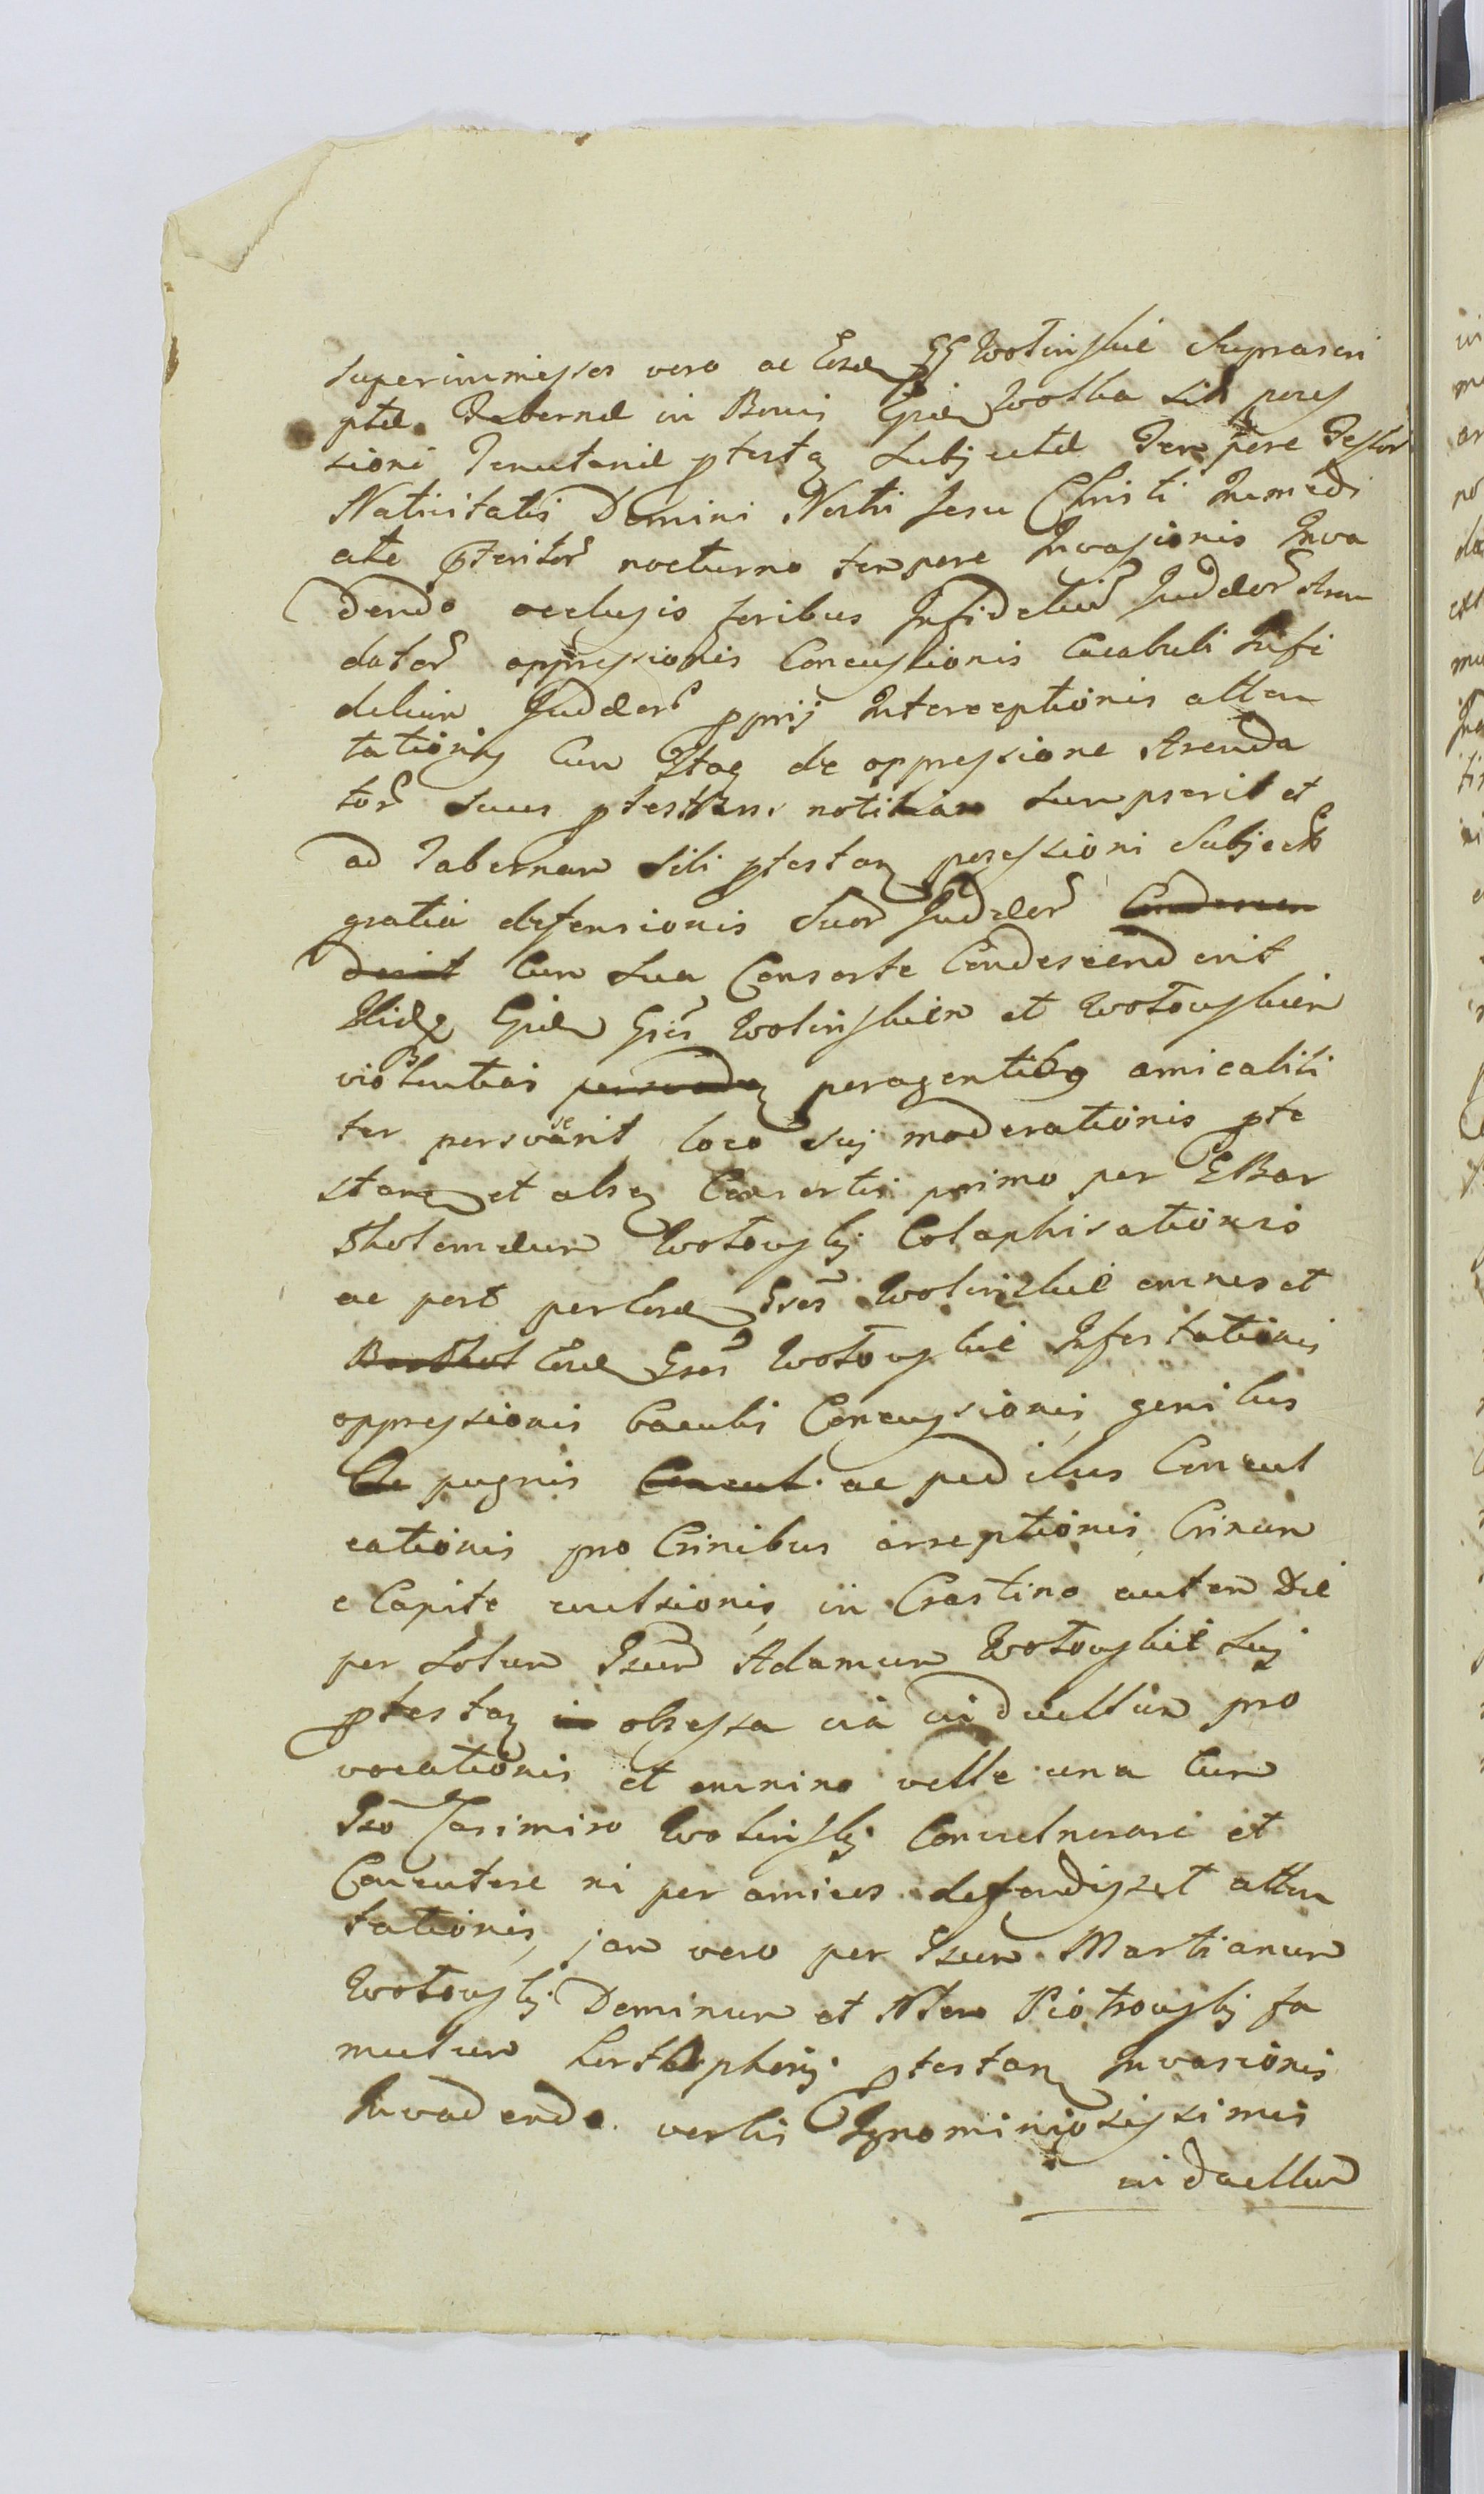 superimmissos vero ac Eosd GG Wolinskie Suprascri
ptæ Tabernæ in Bonis Wolka sitæ poses
sioni Tenutariæ ptestaς Subjectæ Tempore Festor
Nativitatis Domini Nostri Jesu Christi Immedi
ate pteritor nocturno tempore Invasionis Inva
dendo occlusis foribus Infidelium Judæor Aren
dator oppressionis Concussionis Infi
delium Judæor pprij Interceptionis atten
tationis Cum Itaq de oppressione Arenda
tor Suus notitiam sumpserit et
ad Tabernam Sibi ptestanς posessioni Subjectā
gratia defensionis Suor Judæor Condescen
derit Cum Sua Consorte Condescenderit
Gnes Wolinskien et Wotowskien
violentias peragentibq amicabili
ter persvaserit, loco suj moderationis pte
stanς et absq Consortis primo per GBar
tholomæum Wotowskj Colaphisationis
ac post per Eosd Gnes Wolinskie omnes et
Barthol Eosd Gnes Wotowskie Infestationis
oppressionis baculis Concussionis, genibus
pugnis Concul. ac pedibus Concul
cationis pro Crinibus arreptionis Crinum
e Capite evulsionis, in Crastino autem Die
per Solum Gsum Adamum Wotowskie Suj
ptestaς in obsessa via in duellum pro
vocationis et omnino velle una Cum
Gso Casimiro Wolinskj Convulnerare et
Concutere ni per amicos defendisset atten
tationis, jam vero per Gsum Martianum
Wotowskj Dominum et Piotrowskj fa
mulum ptestanς Invasionis
Invadendo verbis Ignominiosissimis
in duellum